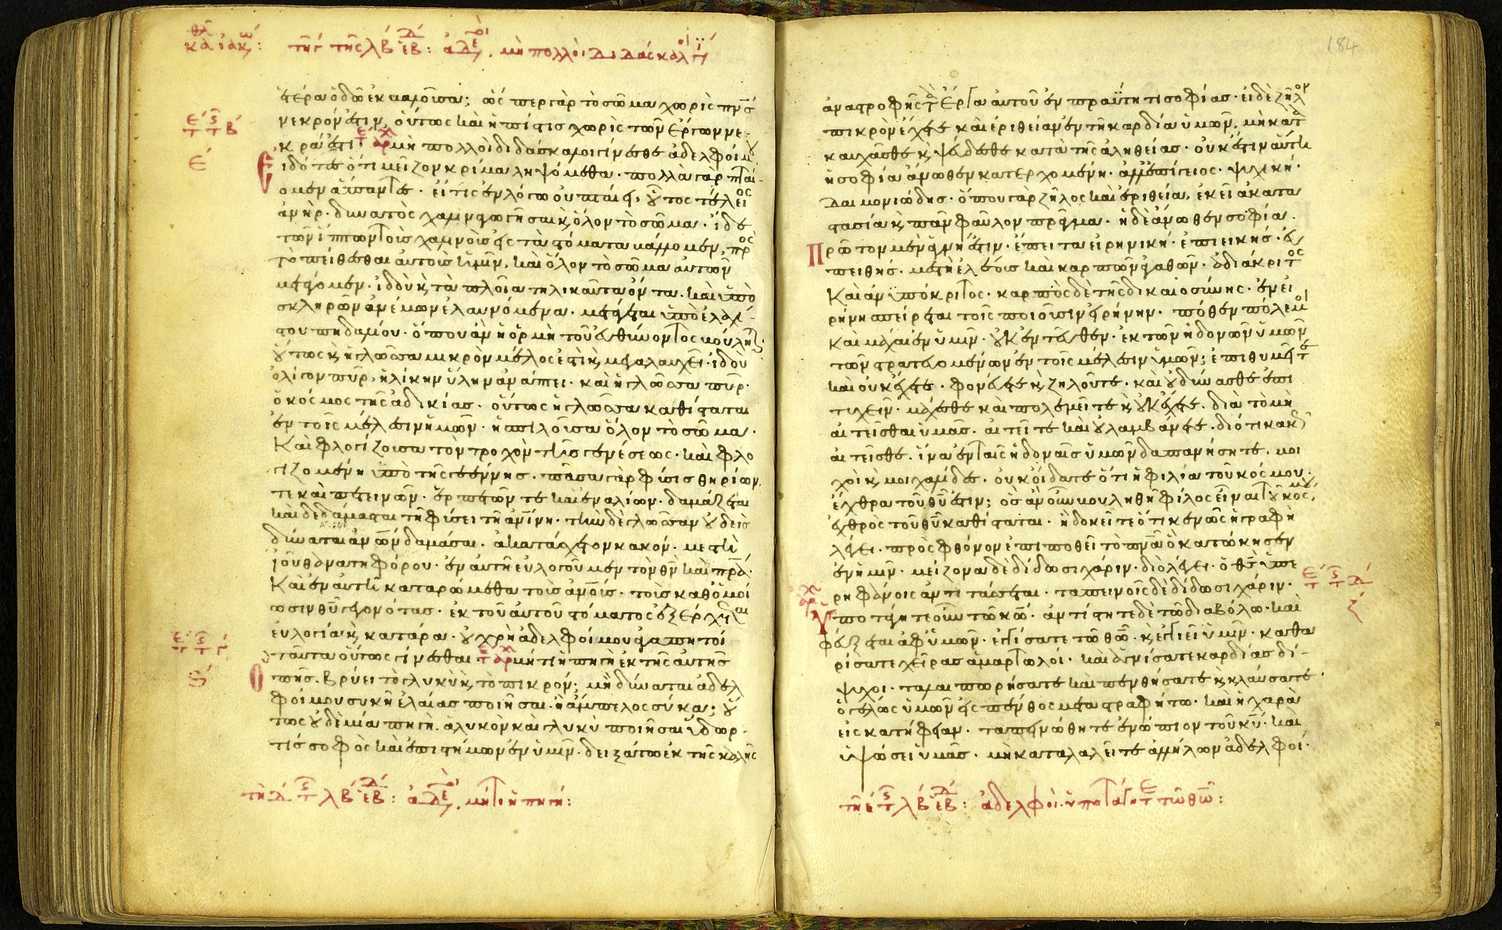 τέρα ὁδῶ ἐκβαλοῦσα; ὥσπερ γὰρ τὸ σῶμα χωρὶς πνς
νεκρόν ἐστιν, οὕτως καὶ ἡ πίστις χωρὶς τῶν ἔργων νε
κρά ἐστι· μὴ πολλοὶ διδάσκαλοι γίνεσθε ἀδελφοί μου
εἰδότες ὅτι μεῖζον κρίμα ληψόμεθα· πολλὰ γὰρ πταί
ομεν ἅπαντες· εἴ τις ἐν λόγω οὐ πταίει, οὗτος τέλειος
ἀνὴρ· δυνατὸς χαλιναγωγῆσαι κ ὅλον τὸ σῶμα· ἴδε
τῶν ἵππων τοὺς χαλινοὺς εἰς τὰ στόματα βάλλομεν, πρὸς
τὸ πείθεσθαι αὐτοὺς ἡμῖν, καὶ ὅλον τὸ σῶμα αὐτῶν
μετάγομεν· ἰδοὺ κ τὰ πλοῖα τηλικαῦτα ὄντα· καὶ ὑπὸ
σκληρῶν ἀνέμων ἐλαυνόμενα· μετάγεται ὑπὸ ἐλαχί
στου πηδαλίου· ὅπου ἂν ἡ ὁρμὴ τοῦ εὐθύνοντος βούληται·
οὕτως κ ἡ γλῶσσα μικρὸν μέλος ἐστὶ κ μεγαλαυχεῖ· ἰδοὺ
ὀλίγον πῦρ, ἡλίκην ὕλην ἀνάπτει· καὶ ἡ γλῶσσα πῦρ·
ὁ κόσμος τῆς ἀδικίας· οὕτως ἡ γλῶσσα καθίσταται
ἐν τοῖς μέλεσιν ἡμῶν· ἡ σπιλοῦσα ὅλον τὸ σῶμα·
καὶ φλογίζουσα τὸν τροχὸν τῆς γενέσεως· καὶ φλο
γιζομένη ὑπὸ τῆς γεέννης· πᾶσα γὰρ φύσις θηρίων
τε καὶ πετεινῶν· ἑρπετῶν τε καὶ ἐναλίων· δαμάζεται
καὶ δεδάμασται τῆ φύσει τῆ ἀνίνη· τὴν δὲ γλῶσσαν οὐδεὶς
δύναται ἀνων δαμάσαι· ἀκατάσχετον κακόν· μεστὴ
ἰοῦ θανατηφόρου· ἐν αὐτῆ εὐλογοῦμεν τὸν θν καὶ πρα·
καὶ ἐν αὐτῆ καταρώμεθα τοὺς ἀνους· τοὺς καθ ὁμοί
ωσιν θυ γεγονότας· ἐκ τοῦ αὐτοῦ στόματος ἐξέρχεται
εὐλογία κ κατάρα· οὐ χρὴ ἀδελφοί μου ἀγαπητοί
ταῦτα οὕτως γίνεσθαι μήτι ἡ πηγὴ ἐκ τῆς αὐτῆς
ὀπῆς βρύει τὸ γλυκὺ κ τὸ πικρόν; μὴ δύναται ἀδελ
φοί μου συκῆ ἐλαίας ποιῆσαι· ἢ ἄμπελος σύκα; οὕ
τως οὐδεμία πηγὴ ἁλυκὸν καὶ γλυκὺ ποιῆσαι ὕδωρ·
τίς σοφὸς καὶ ἐπιστήμων ἐν ὑμῖν· δειξάτω ἐκ τῆς καλῆς
184
ἀναστροφῆς τὰ ἔργα αὐτοῦ ἐν πραΰτητι σοφίας· εἰ δὲ ζῆλον
πικρὸν ἔχετε καὶ ἐριθείαν ἐν τῆ καρδία ὑμῶν, μὴ κατα
καυχᾶσθε κ ψεύδεσθε κατὰ τῆς ἀληθείας· οὐκ ἔστιν αὕτη
ἡ σοφία ἄνωθεν κατερχομένη· ἀλλ ἐπίγειος· ψυχική·
δαιμονιώδης· ὅπου γὰρ ζῆλος καὶ ἐριθεία, ἐκεῖ ἀκατα
στασία κ πᾶν φαῦλον πρᾶγμα· ἡ δὲ ἄνωθεν σοφία
πρῶτον μὲν ἁγνή ἐστιν· ἔπειτα εἰρηνική· ἐπιεικής· εὐ
πειθής· μεστὴ ἐλέους καὶ καρπῶν ἀγαθῶν· ἀδιάκριτος
καὶ ἀνυπόκριτος· καρπὸς δὲ τῆς δικαιοσύνης· ἐν εἰ
ρήνη σπείρεται τοῖς ποιοῦσιν εἰρήνην· πόθεν πόλεμοι
καὶ μάχαι ἐν ὑμῖν· οὐκ ἐντεῦθεν· ἐκ τῶν ἡδονῶν ὑμῶν
τῶν στρατευομένων ἐν τοῖς μέλεσιν ὑμῶν; ἐπιθυμεῖτε
καὶ οὐκ ἔχετε· φονεύετε κ ζηλοῦτε· καὶ οὐ δύνασθε ἐπι
τυχεῖν· μάχεσθε καὶ πολεμεῖτε κ οὐκ ἔχετε· διὰ τὸ μὴ
αἰτεῖσθαι ὑμᾶς· αἰτεῖτε καὶ οὐ λαμβάνετε· διότι κακῶς
αἰτεῖσθε· ἵνα ἐν ταῖς ἡδοναῖς ὑμῶν δαπανήσητε· μοι
χοὶ κ μοιχαλίδες· οὐκ οἴδατε ὅτι ἡ φιλία τοῦ κόσμου
ἔχθρα τοῦ θυ ἐστιν; ὃς ἂν οὖν βουληθῆ φίλος εἶναι τοῦ κόσμου,
ἐχθρὸς τοῦ θυ καθίσταται· ἢ δοκεῖτε ὅτι κενῶς ἡ γραφὴ
λέγει· πρὸς φθόνον ἐπιποθεῖ τὸ πνα ὃ κατώκησεν
ἐν ἡμῖν· μείζονα δὲ δίδωσι χάριν· διὸ λέγει· ὁ θς ὑπε
ρηφάνοις ἀντιτάσσεται· ταπεινοῖς δὲ δίδωσι χάριν·
ὑποτάγητε οὖν τῶ θω· ἀντίστητε δὲ τῶ διαβόλω· καὶ
φεύξεται ἀφ ὑμῶν· ἐγγίσατε τῶ θω· κ ἐγγιεῖ ὑμῖν· καθα
ρίσατε χεῖρας ἁμαρτωλοί· καὶ ἁγνίσατε καρδίας δί
ψυχοι· ταλαιπωρήσατε καὶ πενθήσατε κ κλαύσατε·
ὁ γέλως ὑμῶν εἰς πένθος μεταστραφήτω· καὶ ἡ χαρὰ
εἰς κατήφειαν· ταπεινώθητε ἐνώπιον τοῦ κυ· καὶ
ὑψώσει ὑμᾶς· μὴ καταλαλεῖτε ἀλλήλων ἀδελφοί·